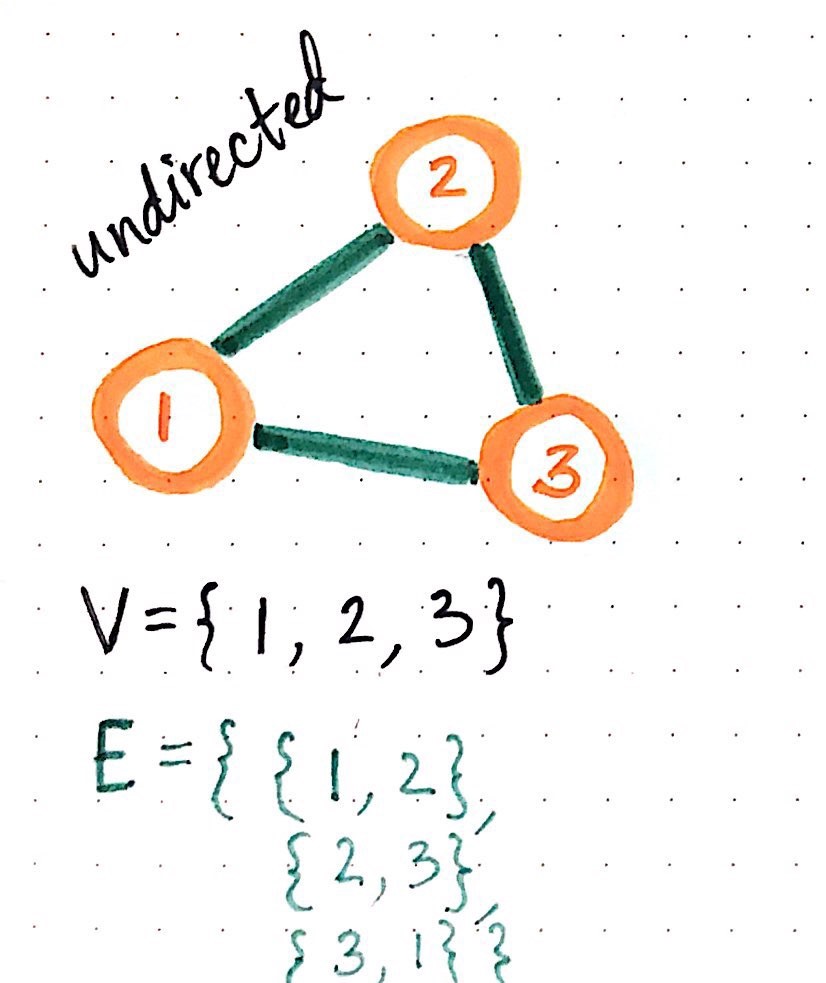 undirected
2
1
3
V={1, 2, 3}
E={ {1, 2},
{2, 3},
{3, 1} }